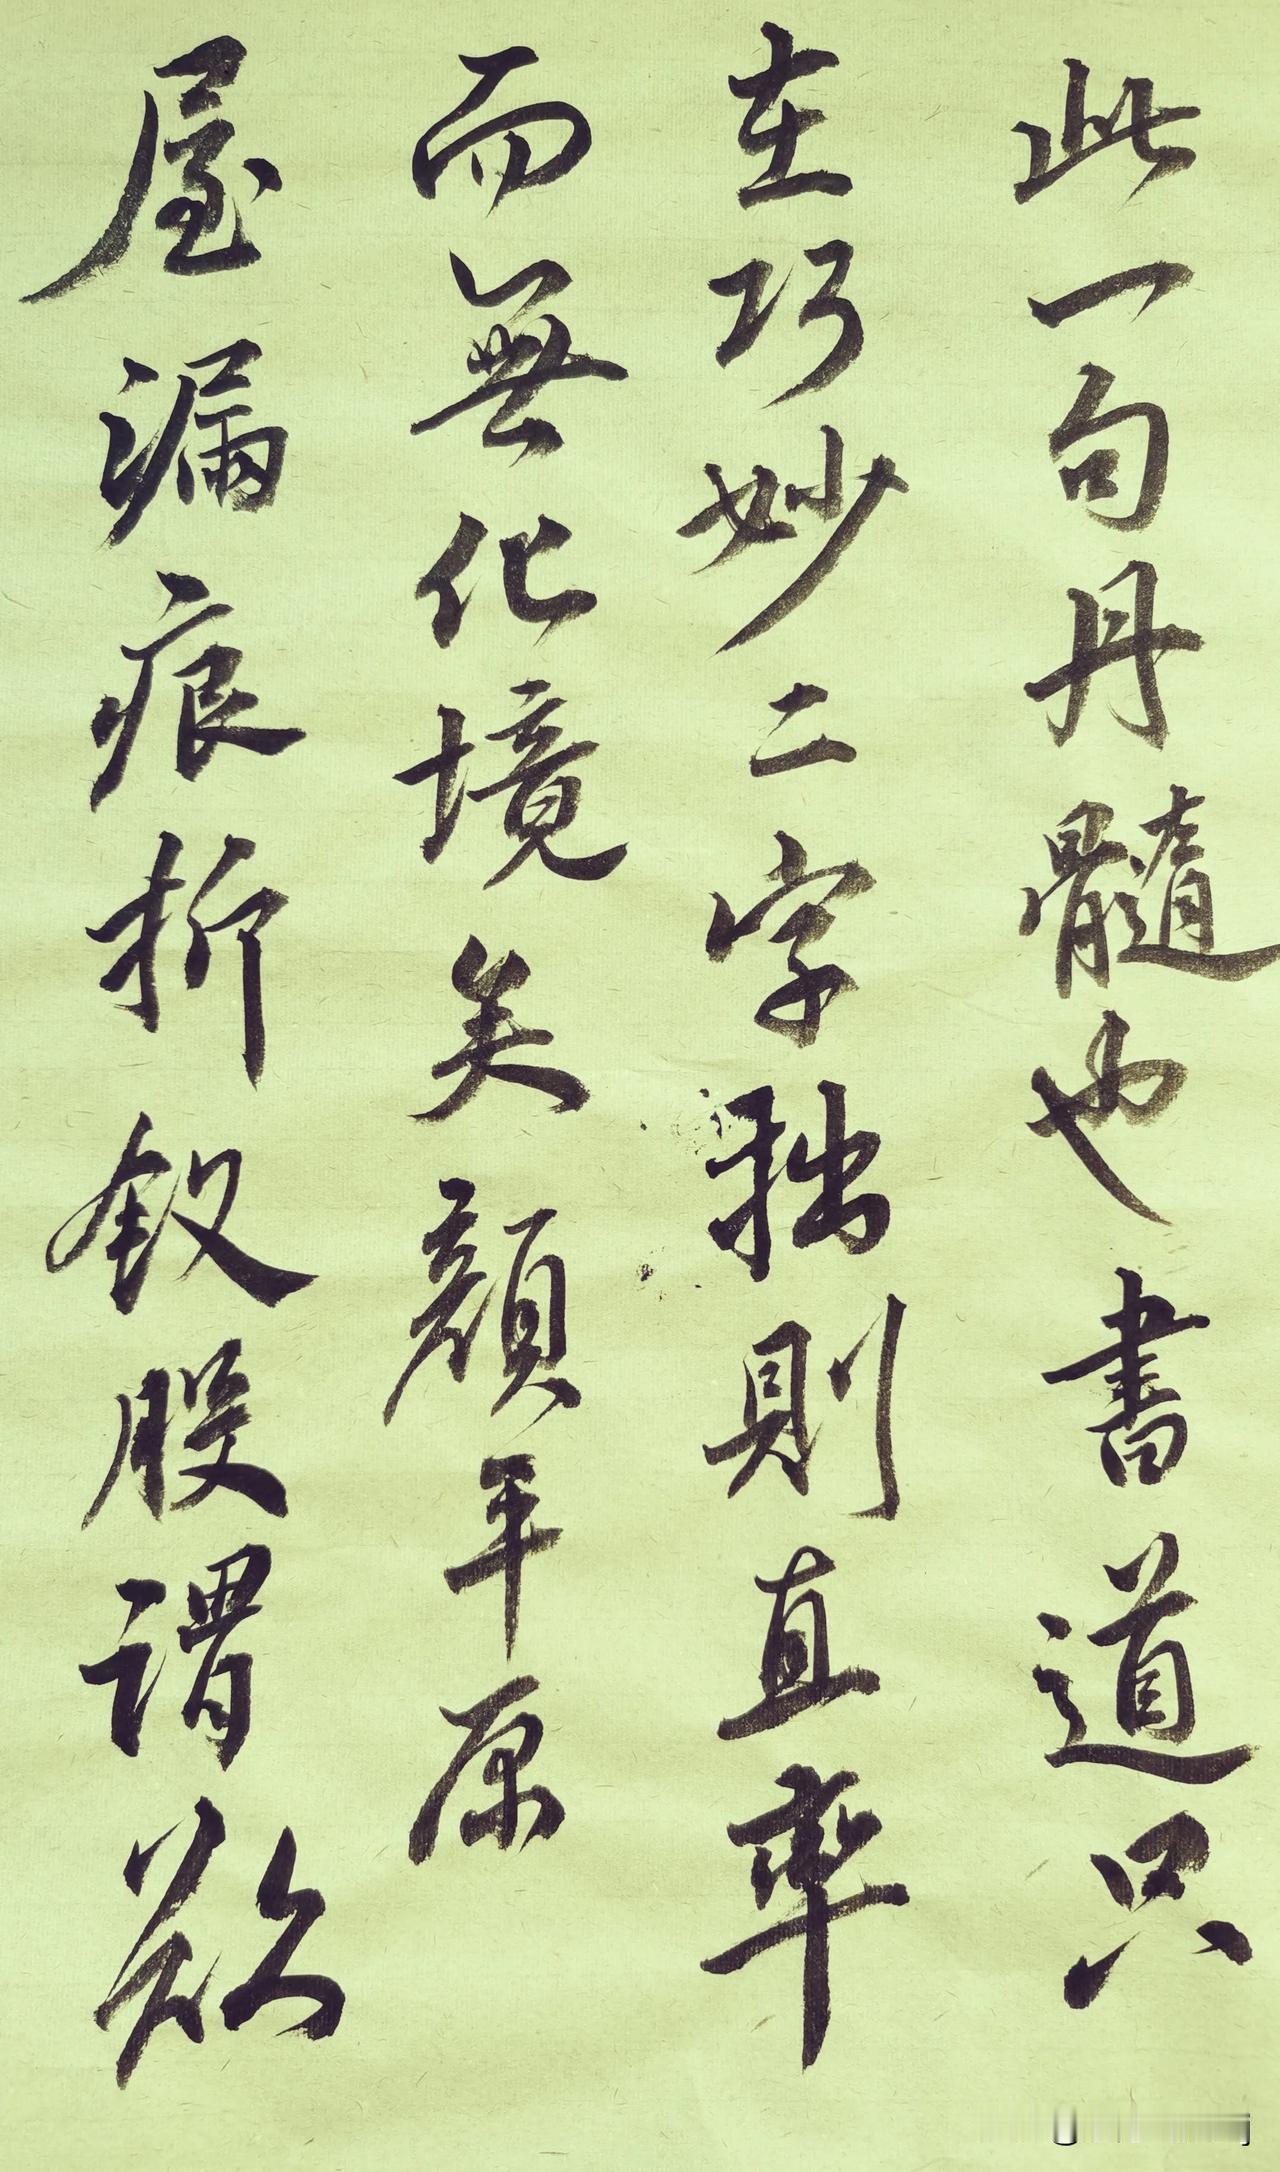 此一句丹髓也書道只
在巧妙二字拙則直率
而無化境矣顏平原
屋漏痕折釵股謂欲